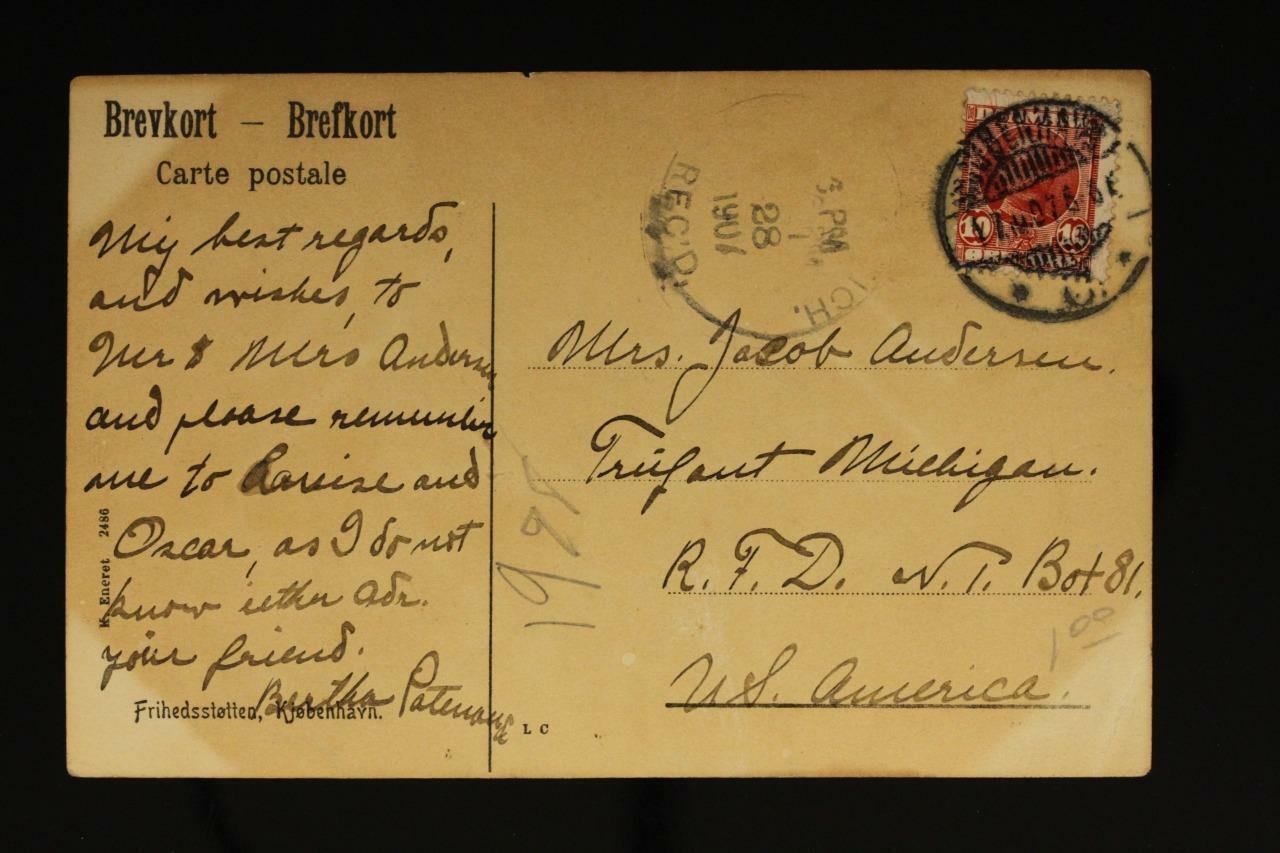 Brevkort — Brefkort
Carte postale
My best regards,
and wishes, to
Mr & Mrs Andersen
and please remember
me to Louise and
Oscar, as I do not
know either adr.
your friend.
Bertha
Frihedsstøtten, Kjøbenhavn.
Eneret 2486
L C
REC'D.
3 PM
28
1907
ICH.
KJØBENHAVN
10 10
Mrs. Jacob Andersen.
Trufant Michigan.
R. F. D. N. 1. Box 81.
U S. America.
1 00